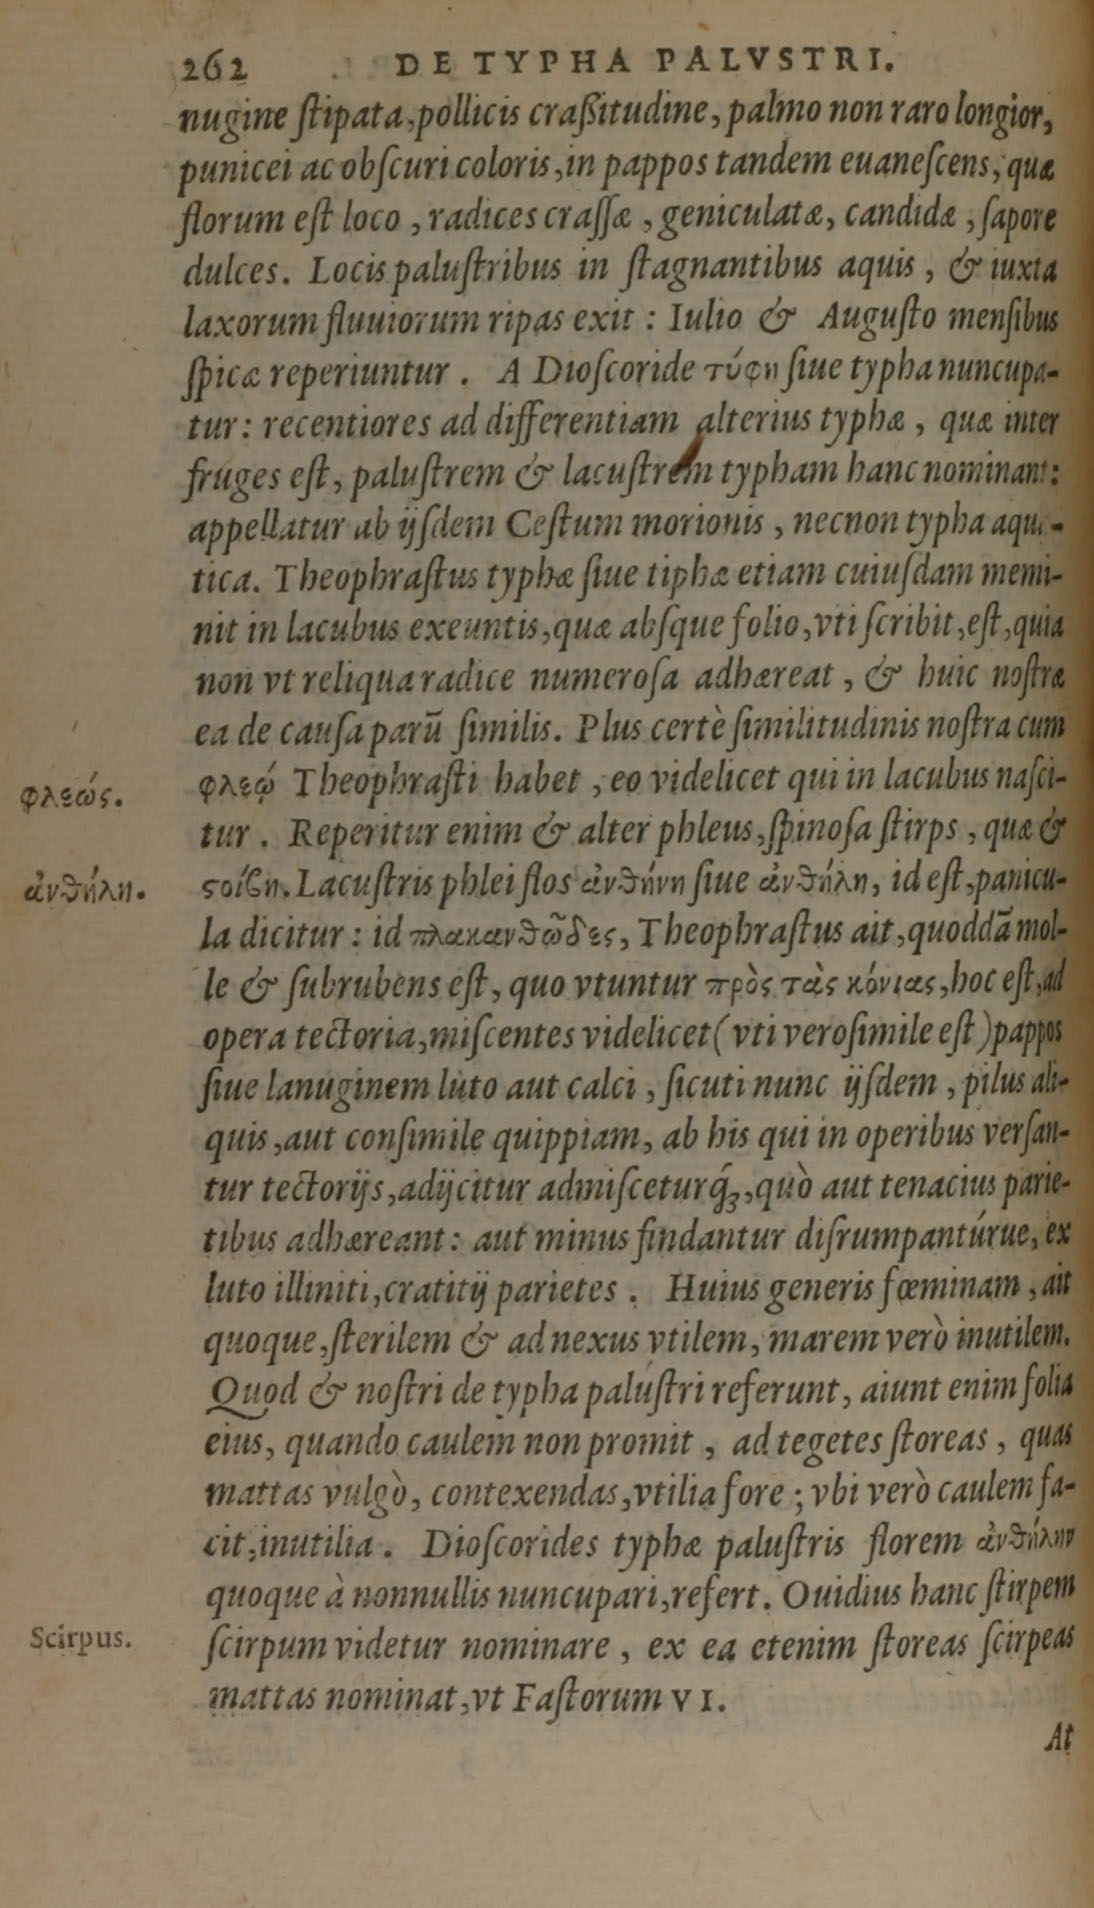 262 DE TYPHA PALVSTRI.
nugine ſtipata, pollicis craßitudine, palmo non raro longior,
punicei ac obſcuri coloris, in pappos tandem euaneſcens, quæ
florum eſt loco, radices craſſæ, geniculatæ, candidæ, ſapore
dulces. Locis paluſtribus in ſtagnantibus aquis, & iuxta
laxorum fluuiorum ripas exit: Iulio & Auguſto menſibus
ſpicæ reperiuntur. A Dioſcoride τύφη ſiue typha nuncupa-
tur: recentiores ad differentiam alterius typhæ, quæ inter
fruges eſt, paluſtrem & lacuſtrem typham hanc nominant:
appellatur ab ijſdem Ceſtum morionis, necnon typha aqua-
tica. Theophraſtus typhæ ſiue tiphæ etiam cuiuſdam memi-
nit in lacubus exeuntis, quæ abſque folio, vti ſcribit, eſt, quia
non vt reliqua radice numeroſa adhæreat, & huic noſtræ
ea de cauſa parū ſimilis. Plus certè ſimilitudinis noſtra cum
φλεώς.
φλεῴ Theophraſti habet, eo videlicet qui in lacubus naſci-
tur. Reperitur enim & alter phleus, ſpinoſa ſtirps, quæ &
ἀνθήλη.
ϛοίβη. Lacuſtris phlei flos ἀνθήνη ſiue ἀνθήλη, id eſt, panicu-
la dicitur: id πλακανθῶδες, Theophraſtus ait, quoddā mol-
le & ſubrubens eſt, quo vtuntur πρὸς τὰς κόνιας, hoc eſt, ad
opera tectoria, miſcentes videlicet (vti veroſimile eſt) pappos
ſiue lanuginem luto aut calci, ſicuti nunc ijſdem, pilus ali-
quis, aut conſimile quippiam, ab his qui in operibus verſan-
tur tectorijs, adijcitur admiſceturq́₃, quò aut tenacius parie-
tibus adhæreant: aut minus findantur diſrumpantúrue, ex
luto illiniti, cratitij parietes. Huius generis fœminam, ait
quoque, ſterilem & ad nexus vtilem, marem verò inutilem.
Quod & noſtri de typha paluſtri referunt, aiunt enim folia
eius, quando caulem non promit, ad tegetes ſtoreas, quas
mattas vulgò, contexendas, vtilia fore; vbi verò caulem fa-
cit, inutilia. Dioſcorides typhæ paluſtris florem ἀνθήλην
quoque à nonnullis nuncupari, refert. Ouidius hanc ſtirpem
Scirpus.
ſcirpum videtur nominare, ex ea etenim ſtoreas ſcirpeas
mattas nominat, vt Faſtorum VI.
At